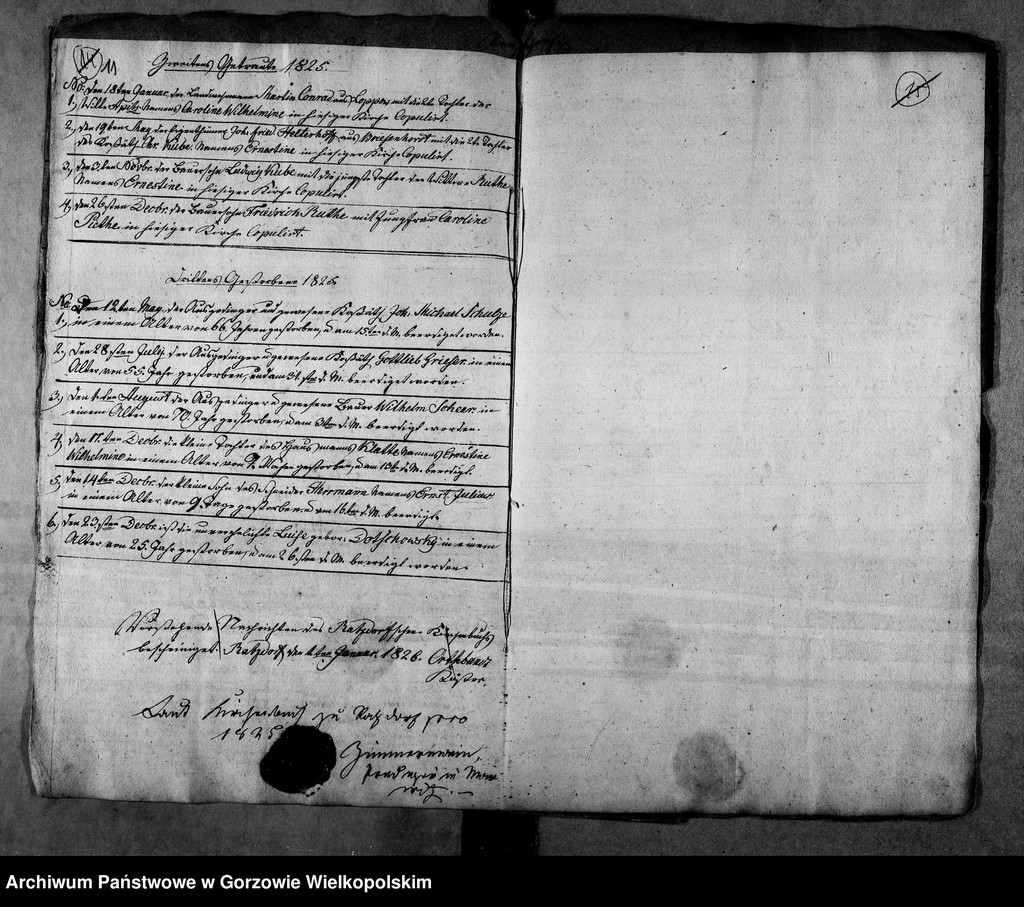 11
Zweitens Getraute 1825.
No. Den 18ten Januar der Martin Conrad aus mit die Tochter des
1., Caroline Wilhelmine in hiesiger Kirche Copulirt.
2., den 19ten May der Eigenthümer Joh. Fried. aus Briesenhorst mit die Tochter
des Koßäth Chr. Kube, Namens Ernestine in hiesiger Kirche Copulirt.
3., den 3ten Novbr. der Bauersohn Ludwig Kube mit die jüngste Tochter der Wittwe Ruthe
Namens Ernestine in hiesiger Kirche Copulirt.
4., den 26sten Decbr. der Bauersohn Friedrich Ruthe mit Jungfrau Caroline
in hiesiger Kirche Copulirt.
Drittens Gestorbene 1825
No. Den 12ten May der Ausgedinger und gewesene Koßäth Joh. Michael Schulze
1., in einem Alter von 66 Jahren gestorben, u am 15ten d. M. beerdiget worden.
2., Den 28sten July der Ausgedinger u gewesene Koßäth Gottlieb Grieser in einem
Alter von 55 Jahr gestorben, und am 31sten d. M. beerdiget worden.
3., den August der Ausgedinger u gewesene Bauer Wilhelm Scheer in
einem Alter von 70 Jahr gestorben, u am 3ten d. M. beerdigt worden.
4., den 11ten Decbr. die kleine Tochter des Hausmanns Klatte Namens Ernestine
Wilhelmine in einem Alter von gestorben, u am 13ten d. M. beerdigt.
5., den 14ten Decbr. der kleine Sohn des Schneider Herrmann Namens Ernst Julius
in einem Alter von 9 Tage gestorben u am 16ten d. M. beerdigt.
6., den 23sten Decbr. ist die unverehelichte Luise gebor. Dotschowsky in einem
Alter von 25 Jahr gestorben, u am 26sten d. M. beerdigt worden.
Vorstehende Nachrichten des Ratzdorfschen Kirchenbuchs
bescheiniget. Ratzdorf den Januar 1826.
Küster.
Laut Kirchenbuch zu Ratzdorf pro
1825
Zimmermann,
Prediger in
Archiwum Państwowe w Gorzowie Wielkopolskim